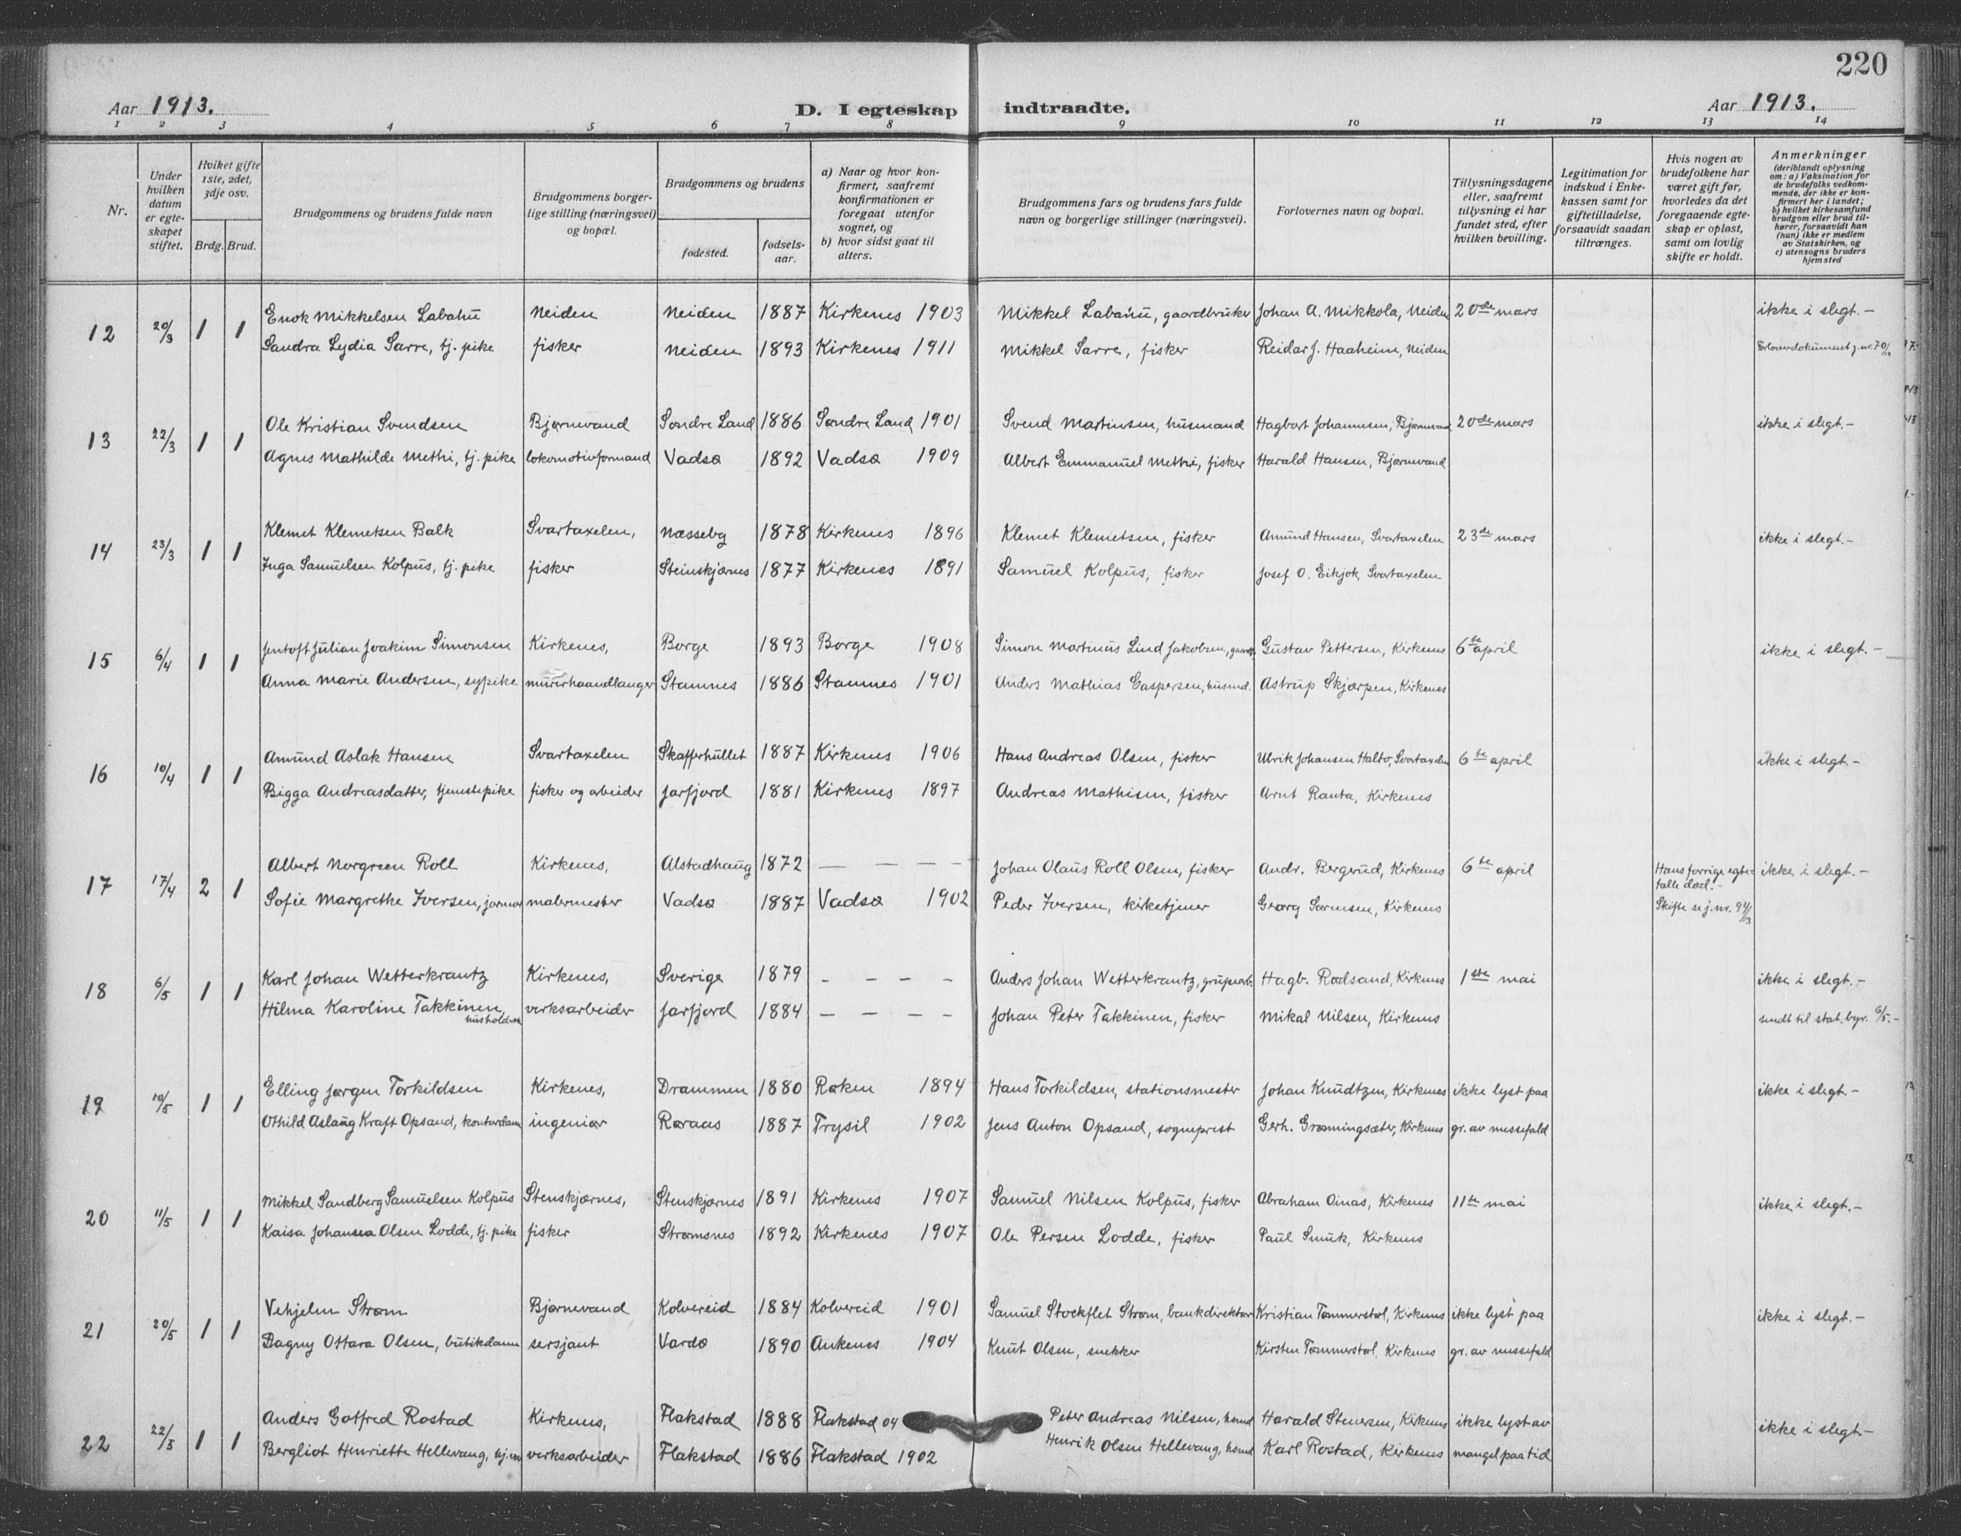 220
Aar 1913. D. I egteskap indtraadte. Aar 1913.
1 2 3 4 5 6 7 8 9 10 11 12 13 14
Nr.
Under hvilken datum er egteskapet stiftet.
Hviket gifte 1ste, 2det, 3dje osv.
Brdg. Brud.
Brudgommens og brudens fulde navn
Brudgommens borgerlige stilling (næringsvei) og bopæl.
Brudgommens og brudens
fødested. fødselsaar.
a) Naar og hvor konfirmert, saafremt konfirmationen er foregaat utenfor sognet, og
b) hvor sidst gaat til alters.
Brudgommens fars og brudens fars fulde navn og borgerlige stillinger (næringsvei).
Forlovernes navn og bopæl.
Tillysningsdagene eller, saafremt tillysning ei har fundet sted, efter hvilken bevilling.
Legitimation for indskud i Enkekassen samt for giftetilladelse, forsaavidt saadan tiltrænges.
Hvis nogen av brudefolkene har været gift før, hvorledes da det foregaaende egteskap er opløst, samt om lovlig skifte er holdt.
Anmerkninger
(deriblandt oplysning om: a) Vaksination for de brudefolks vedkommende, der ikke er konfirmert her i landet; b) hvilket kirkesamfund brudgom eller brud tilhører, forsaavidt han (hun) ikke er medlem av Statskirken, og c) utensogns bruders hjemsted
12 20/3 1 1 Enok Mikkelsen Labahu Neiden Neiden 1887 Kirkenes 1903 Mikkel Labahu, gaardbruker Johan A. Mikkola, Neiden 20de mars ikke i slegt.-
Sandra Lydia Sarre, tj. pike fisker Neiden 1893 Kirkenes 1911 Mikkel Sarre, fisker Reidar J. Haaheim, Neiden
13 22/3 1 1 Ole Kristian Svendsen Bjørnevand Søndre Land 1886 Søndre Land 1901 Svend Martinsen, husmand Hagbart Johannesen, Bjørnevand 20de mars ikke i slegt.-
Agnes Mathilde Methi, tj. pike lokomotivformand Vadsø 1892 Vadsø 1909 Albert Emmanuel Methi, fisker Harald Hansen, Bjørnevand
14 23/3 1 1 Klemet Klemetsen Balk Svartaxelen, Næsseby 1878 Kirkenes 1896 Klemet Klemetsen, fisker Amund Hansen, Svartaxelen 23de mars ikke i slegt.-
Inga Samuelsen Kolpus, tj. pike fisker Steinskjærnes 1877 Kirkenes 1891 Samuel Kolpus, fisker Josef O. Eikjok, Svartaxelen
15 6/4 1 1 Jentoft Julian Joakim Simonsen Kirkenes, Borge 1893 Borge 1908 Simon Martinus Lind Jakobsen, gaardb. Gustav Pettersen, Kirkenes 6te april ikke i slegt.-
Anna Marie Andersen, sypike murerhaandlanger Stamnes 1886 Stamnes 1901 Anders Mathias Caspersen, husmd. Astrup Skjærpen, Kirkenes
16 10/4 1 1 Amund Aslak Hansen Svartaxelen Skafferhullet 1887 Kirkenes 1906 Hans Andreas Olsen, fisker Ulrik Johansen Halto, Svartaxelen 6te april ikke i slegt.-
Bigga Andreasdatter, tjenestepike fisker og arbeider Jarfjord 1881 Kirkenes 1897 Andreas Mathisen, fisker Arnt Ranta, Kirkenes
17 17/4 2 1 Albert Norgreen Roll Kirkenes, Alstadhaug 1872 — — — — Johan Olaus Roll Olsen, fisker Andr. Bergerud, Kirkenes 6te april Hans forrige egtefælle død.- ikke i slegt.-
Sofie Margrethe Iversen, jormor malermester Vadsø 1887 Vadsø 1902 Peder Iversen, kirketjener Georg Sørensen, Kirkenes Skifte se j.nr. 94/13
18 6/5 1 1 Karl Johan Wetterkrantz Kirkenes, Sverige 1879 - - - - Anders Johan Wetterkrantz, grubearb. Hagb. Rødsand, Kirkenes 1ste mai ikke i slegt.-
Hilma Karoline Takkinen, husholderske verksarbeider Jarfjord 1884 — — — — Johan Peter Takkinen, fisker Mikal Nilsen, Kirkenes sendt til stat. byr. 6/5.-
19 10/5 1 1 Elling Jørgen Torkildsen Kirkenes, Drammen 1880 Røken 1894 Hans Torkildsen, stationsmester Johan Knudtzen, Kirkenes ikke lyst paa ikke i slegt.-
Othild Aslaug Kraft Opsand, kontordame ingeniør Røraas 1887 Trysil 1902 Jens Anton Opsand, sogneprest Gerh. Grønningsæter, Kirkenes gr. av messefald
20 11/5 1 1 Mikkel Sandberg Samuelsen Kolpus Stenskjærnes, Stenskjærnes 1891 Kirkenes 1907 Samuel Nilsen Kolpus, fisker Abraham Oinas, Kirkenes 11te mai ikke i slegt.-
Kaisa Johansea Olsen Lodde, tj. pike fisker Strømsnes 1892 Kirkenes 1907 Ole Persen Lodde, fisker Paul Smuk, Kirkenes
21 20/5 1 1 Vehjelm Strøm Bjørnevand Kolvereid 1884 Kolvereid 1901 Samuel Stockflet Strøm, bankdirektør Kristian Tømmerstøl, Kirkenes ikke lyst paa ikke i slegt.-
Dagny Ottara Olsen, butikdame sersjant Vardø 1890 Ankenes 1904 Knut Olsen, snekker Kirsten Tømmerstøl, Kirkenes gr. av messefald
22 22/5 1 1 Anders Gotfred Rostad Kirkenes, Flakstad 1888 Flakstad 04 Peter Andreas Nilsen, husmd Harald Stenersen, Kirkenes ikke lyst av ikke i slegt.-
Bergliot Henriette Hellevang, verksarbeider Flakstad 1886 Flakstad 1902 Henrik Olsen Hellevang, husmd Karl Rostad, Kirkenes mangel paa tid